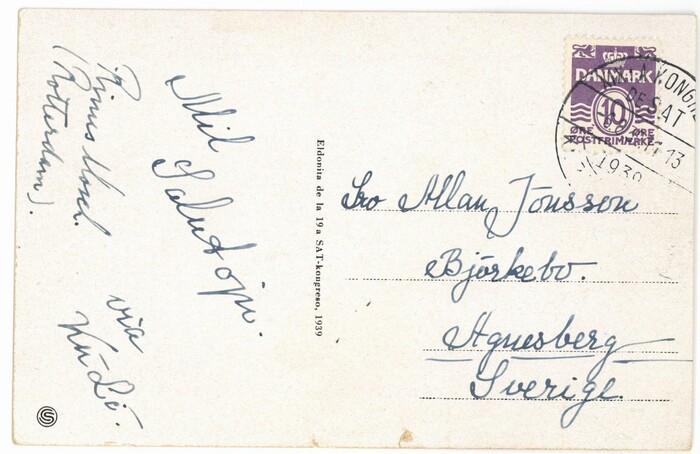 Mil
Salutojn.
via
KuLi.
(Rotterdam).
Eldonita de la 19a SAT-kongreso, 1939
DANMARK
10
ØRE ØRE
POSTFRIMÆRKE
KONGR
DE SAT
13
1939
Sro Allan Jonsson
Björkebo.
Agnesberg
Sverige.
S